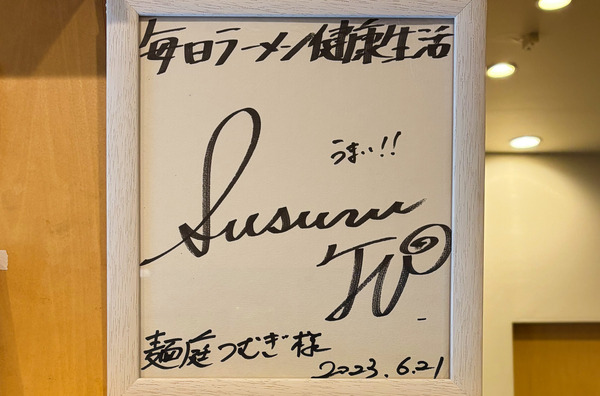 毎日ラーメン健康生活
うまい!!
Susuru
TV
麺庭つむぎ様
2023.6.21